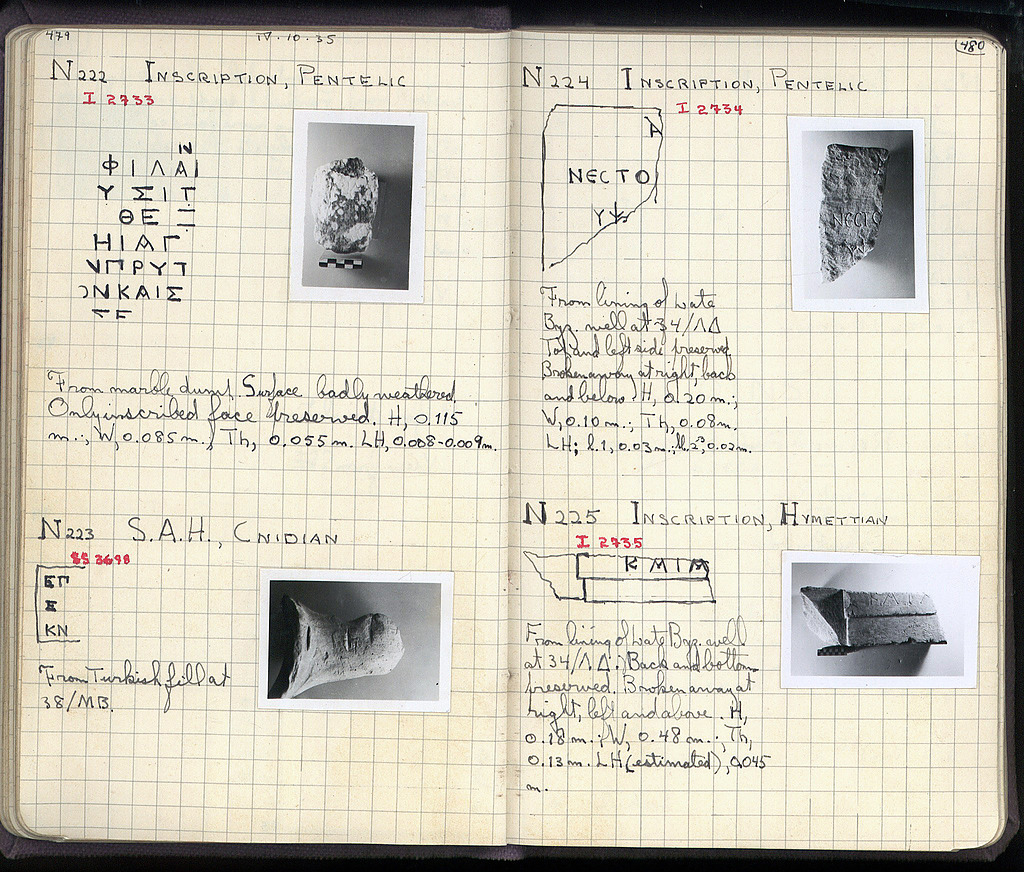 479
IV·10·35
N222 INSCRIPTION, PENTELIC
I 2733
Ν
ΦΙΛΑΙ
ΥΣΙΤ
ΘΕΞ
ΗΙΑΓ
ΝΠΡΥΤ
ΟΝΚΑΙΣ
From marble dump. Surface badly weathered.
Only inscribed face preserved. H, 0.115
m.; W, 0.085 m.; Th, 0.055 m. LH, 0.008-0.009 m.
N223 S.A.H., CNIDIAN
SS 3698
ΕΠ
Ε
ΚΝ
From Turkish fill at
38/MB.
480
N224 INSCRIPTION, PENTELIC
I 2734
Α
ΝΕCΤΟ
Υ
From lining of Late
Byz. well at 34/ΛΔ
Top and left side preserved
Broken away at right, back
and below. H, 0.20 m.;
W, 0.10 m.; Th, 0.08m.
LH; l.1, 0.03 m.; ll.2-3, 0.02m.
N225 INSCRIPTION, HYMETTIAN
I 2735
From lining of Late Byz. well
at 34/ΛΔ. Back and bottom
preserved. Broken away at
right, left and above. H,
0.18 m.; W, 0.48 m.; Th,
0.13 m. LH (estimated), 0.045
m.
ΝΕCΤΟ